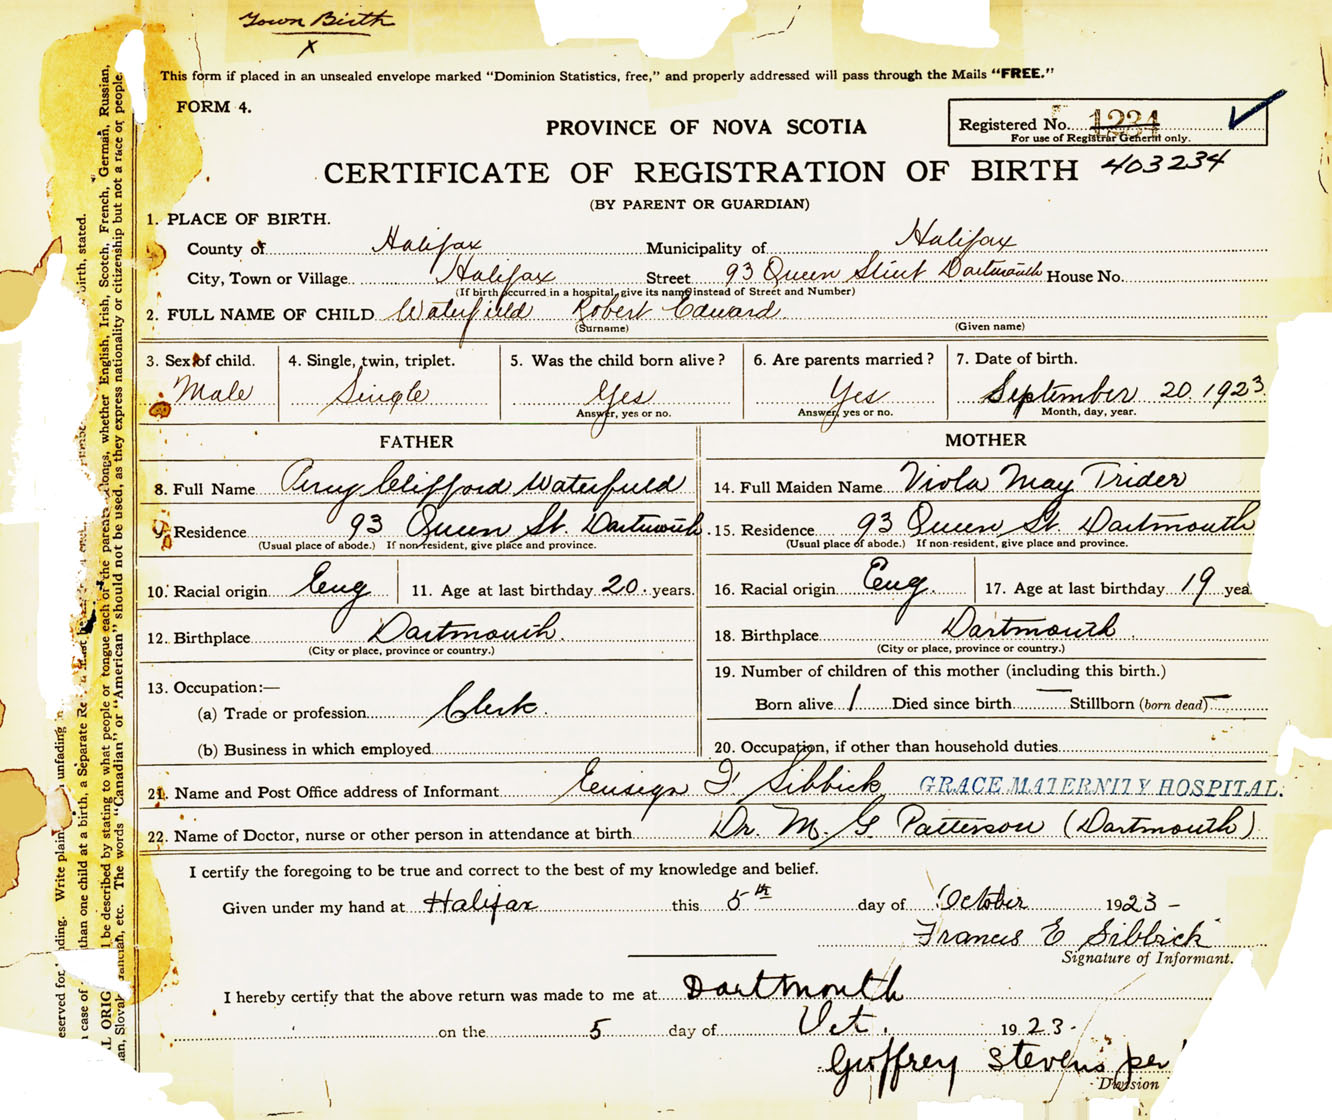 Town Birth
x
This form if placed in an unsealed envelope marked "Dominion Statistics, free," and properly addressed will pass through the Mails "FREE."
FORM 4.
PROVINCE OF NOVA SCOTIA
Registered No. 1234
For use of Registrar General only.
CERTIFICATE OF REGISTRATION OF BIRTH 403234
(BY PARENT OR GUARDIAN)
1. PLACE OF BIRTH.
County of Halifax Municipality of Halifax
City, Town or Village Halifax Street 93 Queen Street Dartmouth House No.
(If birth occurred in a hospital, give its name instead of Street and Number)
2. FULL NAME OF CHILD Waterfield Robert Edward
(Surname) (Given name)
3. Sex of child. 4. Single, twin, triplet. 5. Was the child born alive? 6. Are parents married? 7. Date of birth.
Male Single Yes Yes September 20. 1923
Answer, yes or no. Answer, yes or no. Month, day, year.
FATHER MOTHER
8. Full Name Percy Clifford Waterfield 14. Full Maiden Name Viola May Trider
9. Residence 93 Queen St. Dartmouth 15. Residence 93 Queen St. Dartmouth
(Usual place of abode.) If non-resident, give place and province. (Usual place of abode.) If non-resident, give place and province.
10. Racial origin Eng 11. Age at last birthday 20 years. 16. Racial origin Eng. 17. Age at last birthday 19 yea
12. Birthplace Dartmouth. 18. Birthplace Dartmouth.
(City or place, province or country.) (City or place, province or country.)
13. Occupation:— 19. Number of children of this mother (including this birth.)
(a) Trade or profession Clerk. Born alive 1 Died since birth — Stillborn (born dead) —
(b) Business in which employed 20. Occupation, if other than household duties
21. Name and Post Office address of Informant Ensign F Sibbick GRACE MATERNITY HOSPITAL.
22. Name of Doctor, nurse or other person in attendance at birth Dr. M. G Patterson (Dartmouth)
I certify the foregoing to be true and correct to the best of my knowledge and belief.
Given under my hand at Halifax this 5th day of October 1923 -
Francis E Sibbick
Signature of Informant.
I hereby certify that the above return was made to me at Dartmouth
on the 5 day of Oct. 1923-
Geoffrey Stevens per
Division
birth, stated.
than one child at a birth, a Separate Re
nding. Write plain unfading
eserved for
case of
AL ORIG l be described by stating to what people or tongue each of the parents belongs, whether English, Irish, Scotch, French, German, Russian,
an, Slovak etc. The words "Canadian" or "American" should not be used, as they express nationality or citizenship but not a race or people.